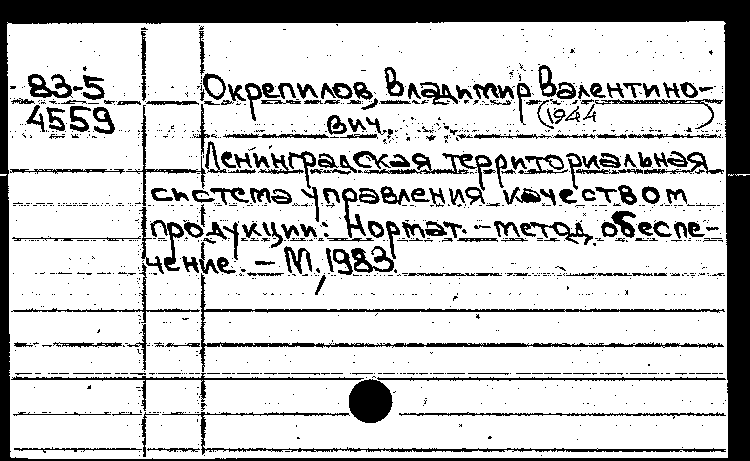 83-5 Окрепилов, Владимир Валентино-
4559 вич (1944 )
Ленинградская территориальная
система управления качеством
продукции: Нормат.-метод. обеспе-
чение. - М., 1983.